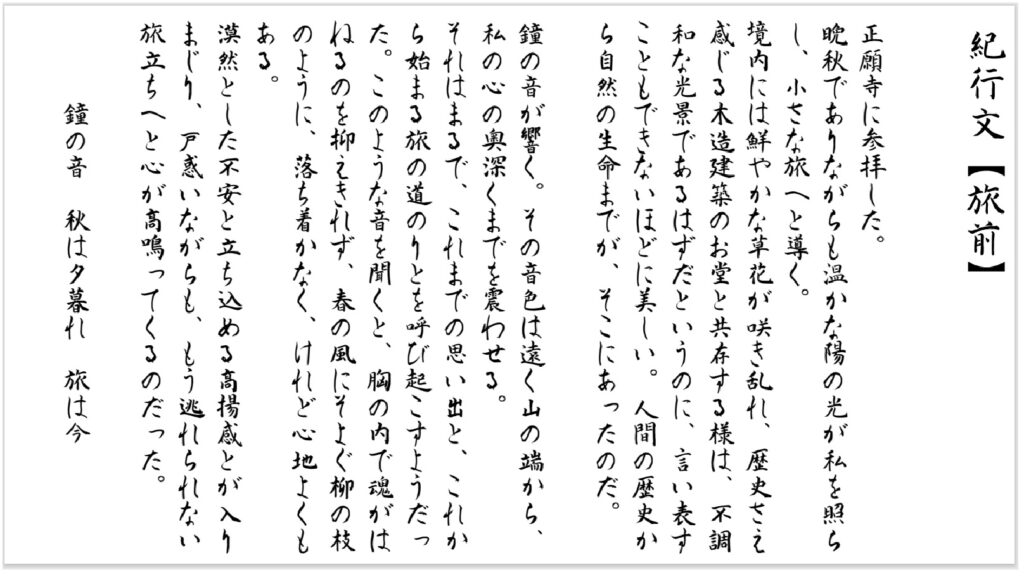 紀行文【旅前】
正願寺に参拝した。
晩秋でありながらも温かな陽の光が私を照ら
し、小さな旅へと導く。
境内には鮮やかな草花が咲き乱れ、歴史さえ
感じる木造建築のお堂と共存する様は、不調
和な光景であるはずだというのに、言い表す
こともできないほどに美しい。人間の歴史か
ら自然の生命までが、そこにあったのだ。
鐘の音が響く。その音色は遠く山の端から、
私の心の奥深くまでを震わせる。
それはまるで、これまでの思い出と、これか
ら始まる旅の道のりとを呼び起こすようだっ
た。このような音を聞くと、胸の内で魂がは
ねるのを抑えきれず、春の風にそよぐ柳の枝
のように、落ち着かなく、けれど心地よくも
ある。
漠然とした不安と立ち込める高揚感とが入り
まじり、戸惑いながらも、もう逃れられない
旅立ちへと心が高鳴ってくるのだった。
鐘の音　秋は夕暮れ　旅は今